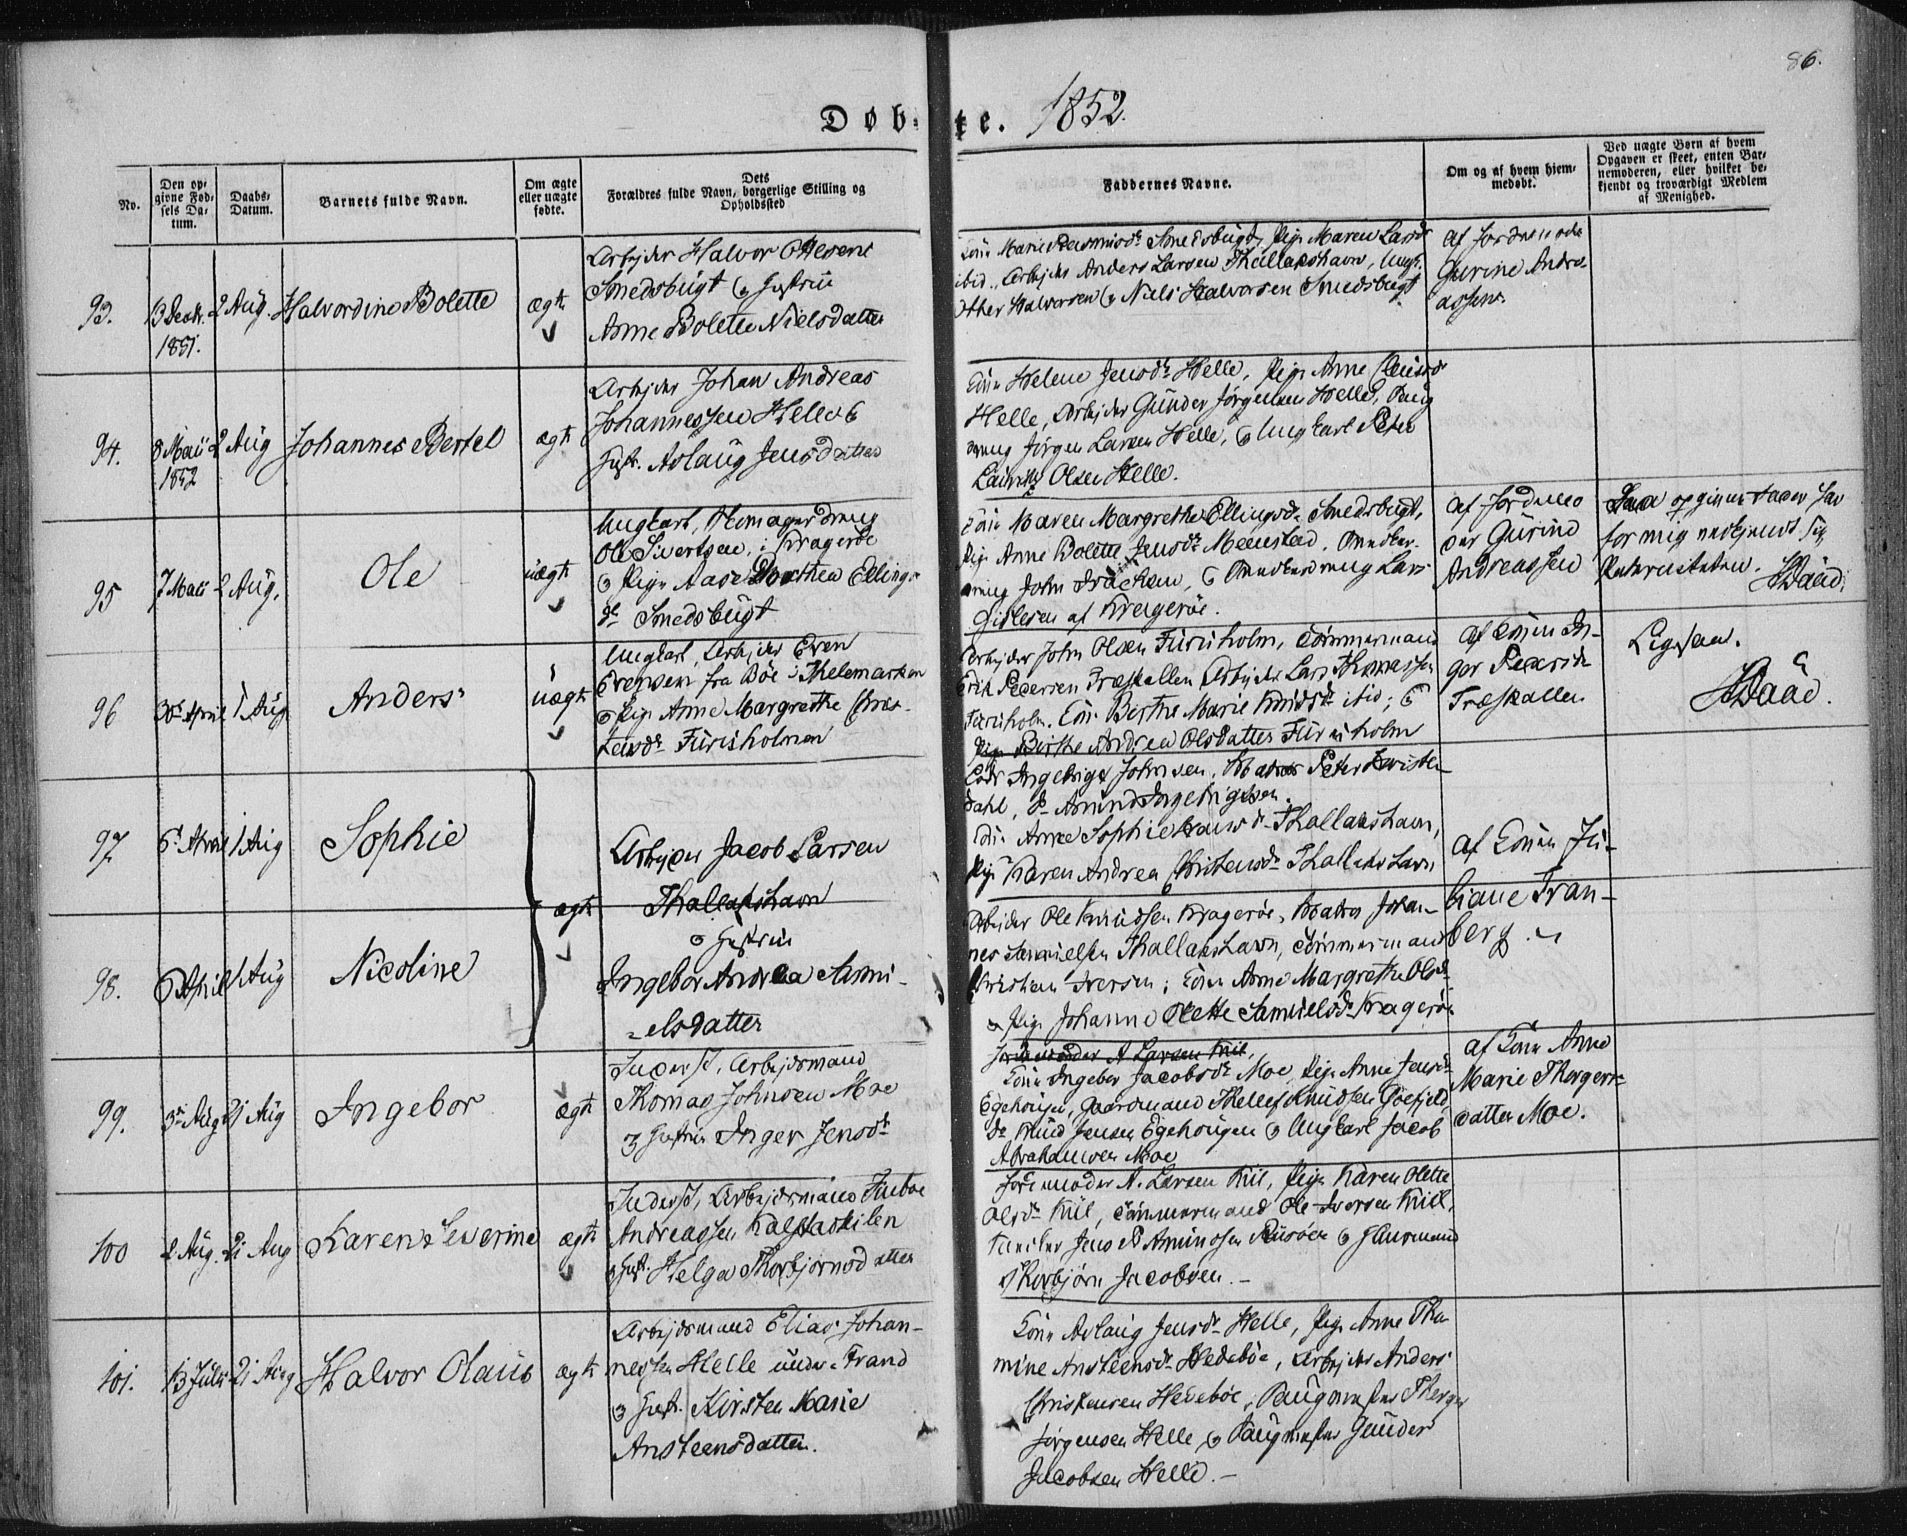 86.
Døbte. 1852.
No.
Den opgivne Fødsels Datum.
Daabs-Datum.
Barnets fulde Navn.
Om ægte eller uægte fødte.
Dets Forældres fulde Navn, borgerlige Stilling og Opholdssted
Faddernes Navne.
Om og af hvem hjemmedøbt.
Ved uægte Børn af hvem Opgaven er skeet, enten Barnemoderen, eller hvilket bekjendt og troværdigt Medlem af Menighed.
93.
13 Decbr. 1851.
2 Aug.
Halvordine Bolette
ægte
Arbejder Halvor Ottesen
Smedsbugt og Hustrue
Anne Bolette Nielsdatter
Kone Marie Rasmusdr Smedsbugt, Pige Maren Larsdr
ibid., Arbejder Anders Larsen Thallakshavn, Ungk.
Other Halvorsen og Niels Halvorsen Smedsbugt
af Jordemoder
Gurine Andre-
assen.
94.
8 Mai 1852
2 Aug
Johannes Bertel
ægte
Arbejder Johan Andreas
Johannessen Helle og
Hust. Aslaug Jensdatter
Kone Helene Jensdr Helle, Pige Anne
Helle, Arbejder Gunder Jørgensen Helle,
Jørgen Larsen Helle, og Ungkarl Peter
Lauritz Olsen Helle.
95
7 Mai
2 Aug.
Ole
uægte
Ungkarl,
Ole Sivertsen, i Kragerøe
og Pige Aase Dorthea Ellings-
dr Smedsbugt
Kone Maren Margrethe Ellingsdr Smedsbugt,
Pige Anne Bolette Jensdr Menstad,
John Isaksen, og Lars
Gislesen af Kragerøe.
af Jordemo
der Gurine
Andreassen
opgiven Fader har
for mig vedkjendt sig
Paterniteten.
Daae.
96
30 April
1 Aug
Anders
uægte
Ungkarl, Arbejder Even
Evensen fra Bøe i Thelemarken
og Pige Anne Margrethe
Furuholmen
Arbejder John Olsen Furuholm, Tømmermand
Erik Pedersen Træskallen, Arbejder Lars Thomassen
Furuholm. Kone Berthe Marie Knudsdr ibid; og
Pige Birthe Andrea Olsdatter Furuholm
af Konen In-
ger
Træskallen
Ligesaa.
Daae.
97
6 April
1 Aug
Sophie
ægte
Arbejder Jacob Larsen
Thallakshavn
og Hustrue
Ingebor Andrea Samu-
elsdatter
Ingebrigt Johnsen, Matros Peter Christen
dahl, do Amund Ingebrigtsen.
Kone Anne Sophie Thallakshavn,
Pige Karen Andrea Christensdr Thallakshavn
af Konen Ju-
liane Fran-
berg.
98.
6 April
1 Aug
Nicoline
Arbejder Ole Knudsen Kragerøe, Matros Johan-
nes Samuelsen Thallakshavn, Tømmermand
Christian Iversen; Kone Anne Margrethe Olsdr
og Pige Johanne Olette Samuelsdr Kragerøe
99.
3 Aug
21 Aug
Ingebor
ægte
Inderst, Arbejdsmand
Thomas Johnsen Moe
og Hustrue Inger Jensdr
Jordemoder A Larsen Kiil,
Kone Ingebor Jacobsdr Moe, Pige Anne Jensdr
Egehougen, Gaardmand Thellef Knudsen Gofjeld,
do Knud Jensen Egehougen og Ungkarl Jacob
Abrahamsen Moe
af Kone Anne
Marie Thorgers-
datter Moe.
100
2 Aug.
21 Aug
Karen Severine
ægte
Inderst, Arbejdsmand
Andreassen Kalstadkilen
og Hust. Helga Thorbjørnsdatter
Jordemoder A. Larsen Kiil, Pige Karen Olette
Olsdr Kiil, Tømmermand Ole Iversen Kiil,
Jens P Amundsen og Gaardmand
Thorbjørn Jacobsen.
101.
13 Juli
21 Aug
Halvor Olaus
ægte
Arbejdsmand Elias Johan-
nessen Helle under Frand
og Hust. Kirsten Marie
Ansteensdatter.
Kone Aslaug Jensdr Helle, Pige Anne Tho
mine Ansteensdr Hedebøe, Arbejder Anders
Christensen Hedebøe, Thorger
Jørgensen Helle og Gunder
Jacobsen Helle.